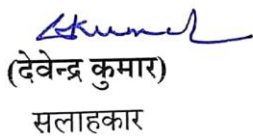 (देवेन्द्र कुमार)
सलाहकार